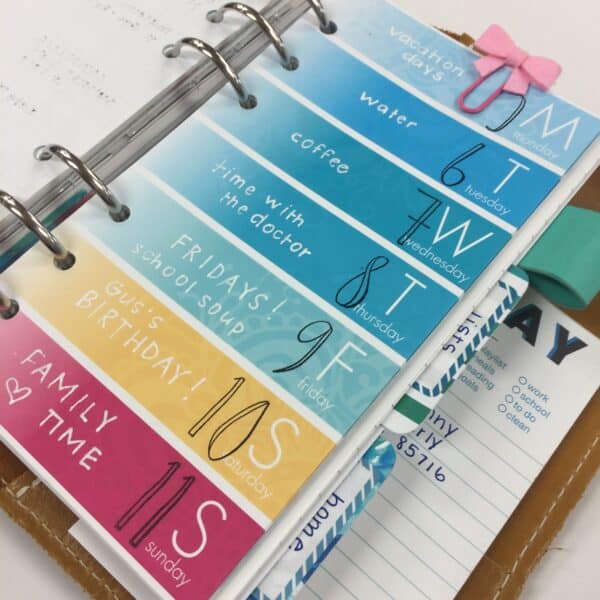 vacation
days
5 M
monday
water
6 T
tuesday
coffee
7 W
wednesday
time with
the doctor
8 T
thursday
FRIDAYS!
school soup
9 F
friday
GUS'S
BIRTHDAY!
10 S
saturday
FAMILY
♡ TIME
11 S
sunday
AY
work
school
to do
clean
85716
home